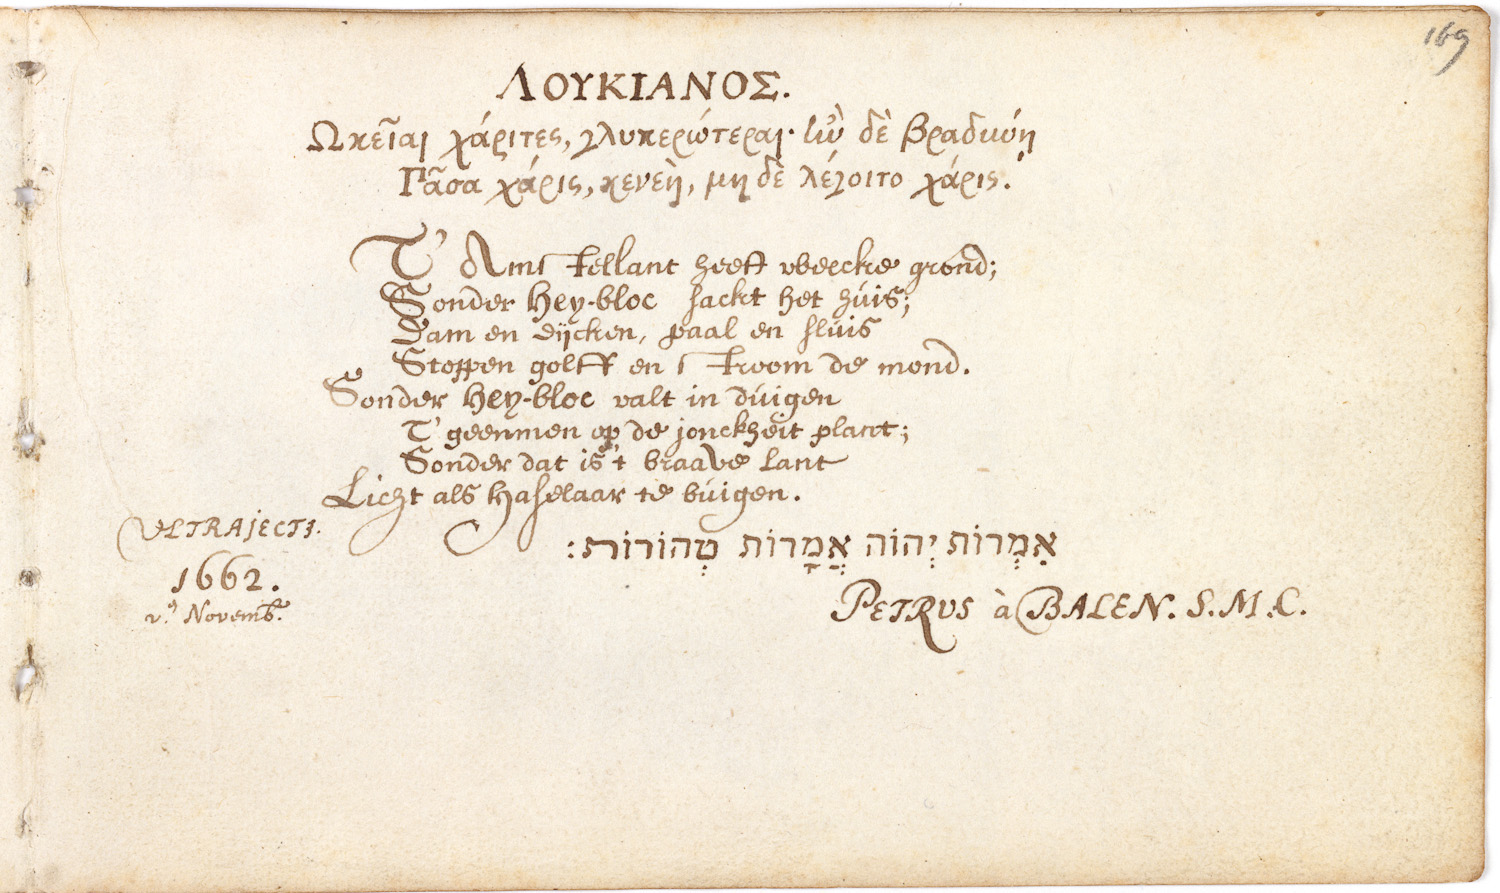 169
ΛΟΥΚΙΑΝΟΣ.
Ωκεῖαι χάριτες, γλυκερώτεραι· ἰὼ δὲ βραδυνῃ
Πᾶσα χάρις, κενεὴ, μη δὲ λέγοιτο χάρις.
T' Amstellant heeft weecke grond;
Sonder Hey-bloc sackt het húis;
Dam en dijcken, paal en slúis
Stoppen golff en stroom de mond.
Sonder Hey-bloc valt in dúigen
T' geenmen op de jonckheit plant;
Sonder dat is 't braave lant
Licht als Haselaar te búigen.
אִמְרוֹת יְהוֹה אֲמָרוֹת טְהוֹרוֹת:
VLTRAJECTI.
1662.
Novemb.
PETRVS à BALEN. S. M. C.